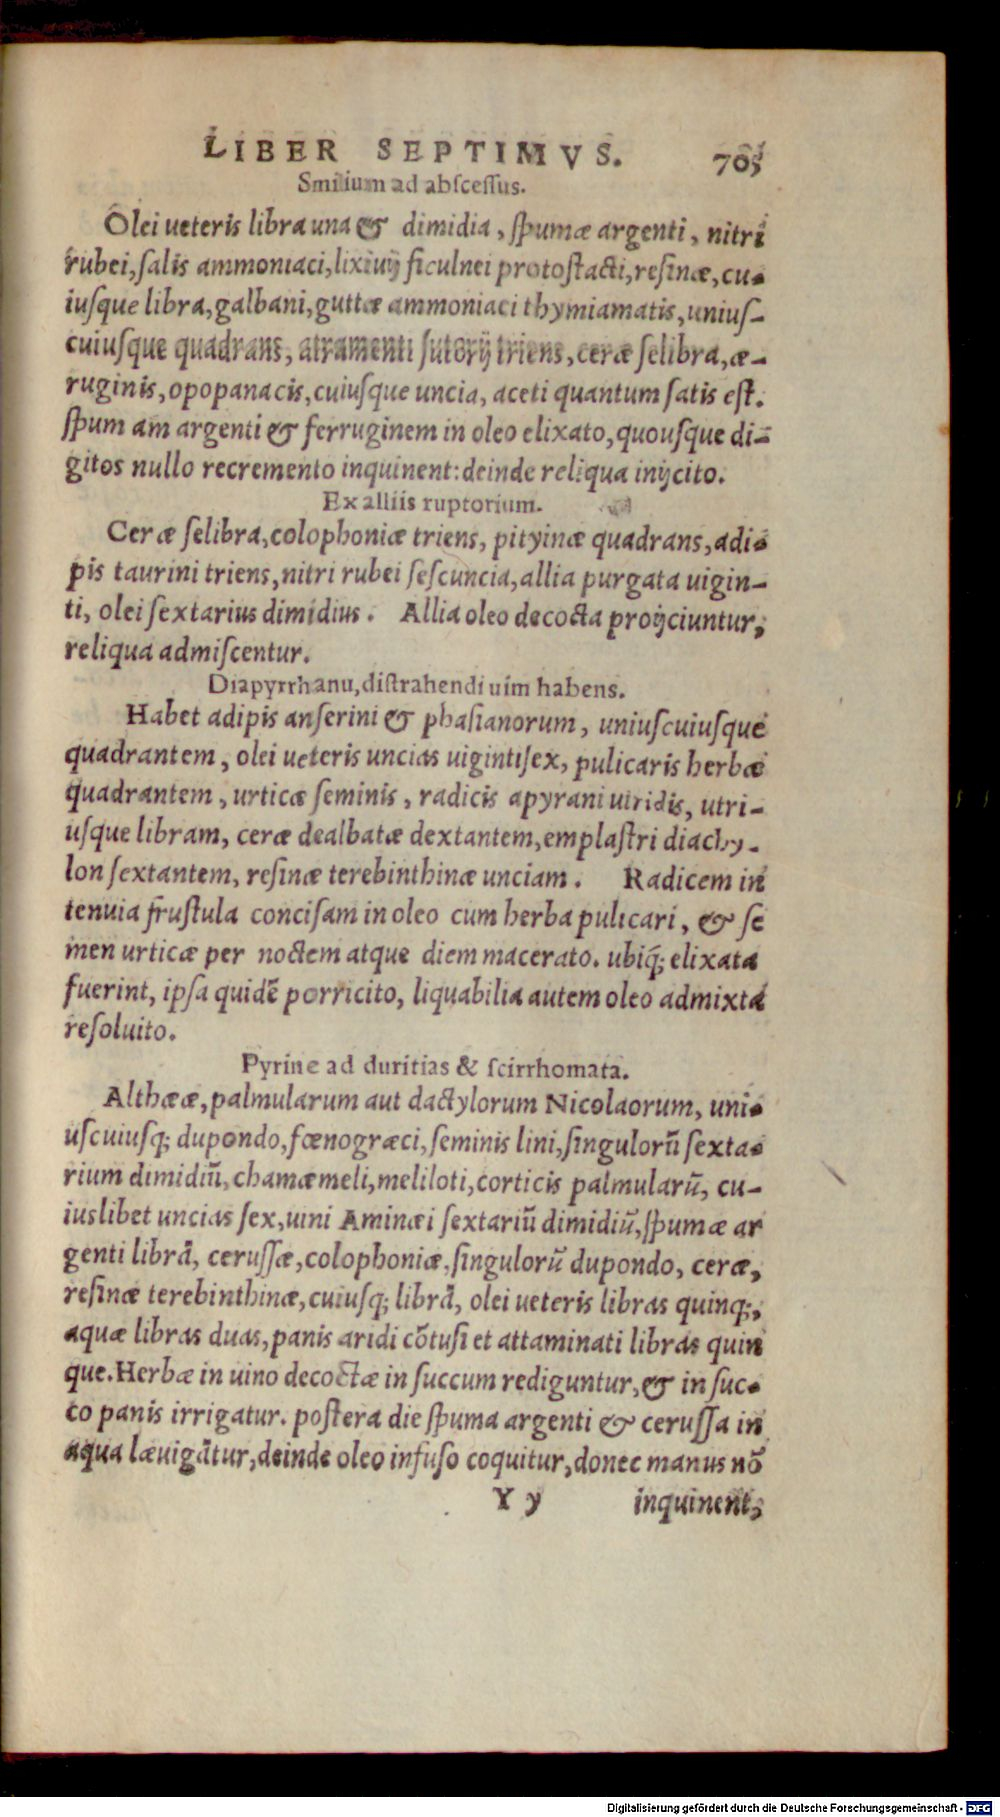 LIBER SEPTIMVS. 705
Smilium ad abſceſſus.
Olei ueteris libra una & dimidia, ſpumæ argenti, nitri
rubei, ſalis ammoniaci, lixiuij ficulnei protoſtacti, reſinæ, cu-
iuſque libra, galbani, guttæ ammoniaci thymiamatis, uniuſ-
cuiuſque quadrans, atramenti ſutorij triens, ceræ ſelibra, æ-
ruginis, opopanacis, cuiuſque uncia, aceti quantum ſatis eſt.
ſpum am argenti & ferruginem in oleo elixato, quouſque di-
gitos nullo recremento inquinent: deinde reliqua inijcito.
Ex alliis ruptorium.
Ceræ ſelibra, colophoniæ triens, pityinæ quadrans, adi-
pis taurini triens, nitri rubei ſeſcuncia, allia purgata uigin-
ti, olei ſextarius dimidius. Allia oleo decocta proijciuntur,
reliqua admiſcentur.
Diapyrrhanu, diſtrahendi uim habens.
Habet adipis anſerini & phaſianorum, uniuſcuiuſque
quadrantem, olei ueteris uncias uigintiſex, pulicaris herbæ
quadrantem, urticæ ſeminis, radicis apyrani uiridis, utri-
uſque libram, ceræ dealbatæ dextantem, emplaſtri diachy-
lon ſextantem, reſinæ terebinthinæ unciam. Radicem in
tenuia fruſtula conciſam in oleo cum herba pulicari, & ſe
men urticæ per noctem atque diem macerato. ubiq; elixata
fuerint, ipſa quidē porricito, liquabilia autem oleo admixta
reſoluito.
Pyrine ad duritias & ſcirrhomata.
Althææ, palmularum aut dactylorum Nicolaorum, uni-
uſcuiuſq; dupondo, fœnogræci, ſeminis lini, ſingulorū ſexta-
rium dimidiū, chamæmeli, meliloti, corticis palmularū, cu-
iuslibet uncias ſex, uini Aminæi ſextariū dimidiū, ſpumæ ar
genti librā, ceruſſæ, colophoniæ, ſingulorū dupondo, ceræ,
reſinæ terebinthinæ, cuiuſq; librā, olei ueteris libras quinq;,
aquæ libras duas, panis aridi cōtuſi et attaminati libras quin
que. Herbæ in uino decoctæ in ſuccum rediguntur, & in ſuc-
co panis irrigatur. poſtera die ſpuma argenti & ceruſſa in
aqua læuigātur, deinde oleo infuſo coquitur, donec manus nō
Y y inquinent,
Digitalisierung gefördert durch die Deutsche Forschungsgemeinschaft - DFG